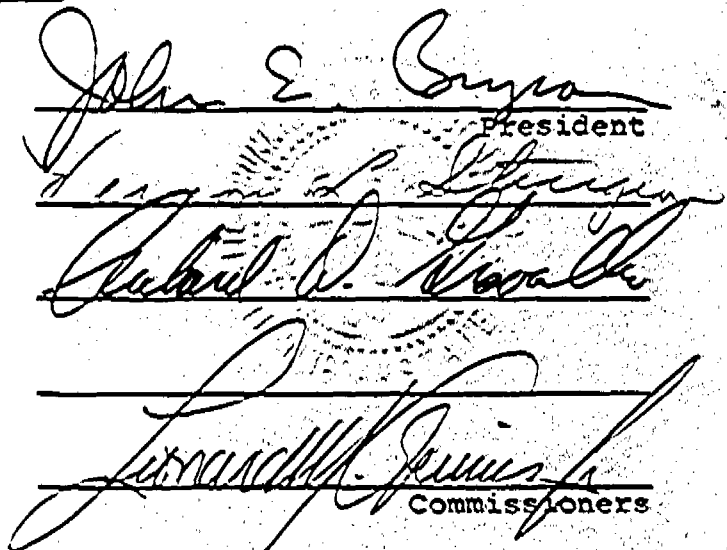 John E. Bryson
President
Vernon L. Sturgeon
Richard D. Gravelle
Leonard M. Grimes Jr
Commissioners